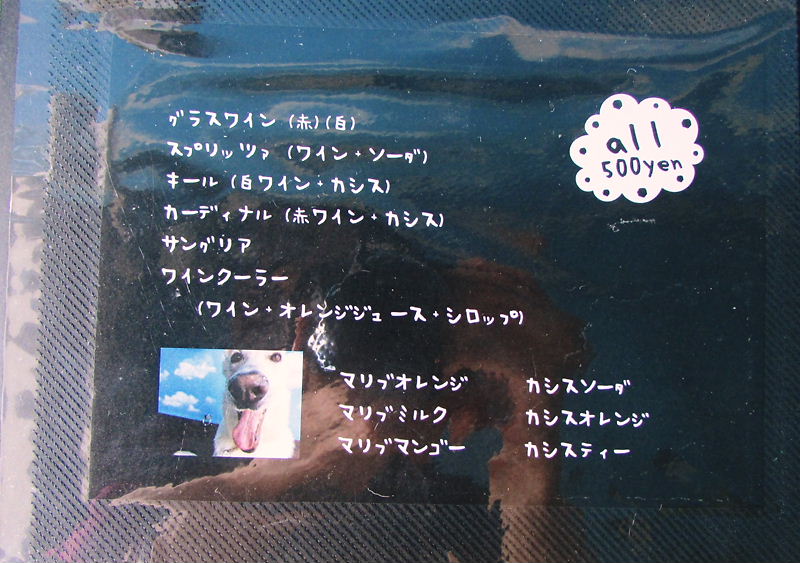 グラスワイン (赤)(白)
スプリッツァ (ワイン+ソーダ)
キール (白ワイン+カシス)
カーディナル (赤ワイン+カシス)
サングリア
ワインクーラー
(ワイン+オレンジジュース+シロップ)
all
500yen
マリブオレンジ
マリブミルク
マリブマンゴー
カシスソーダ
カシスオレンジ
カシスティー